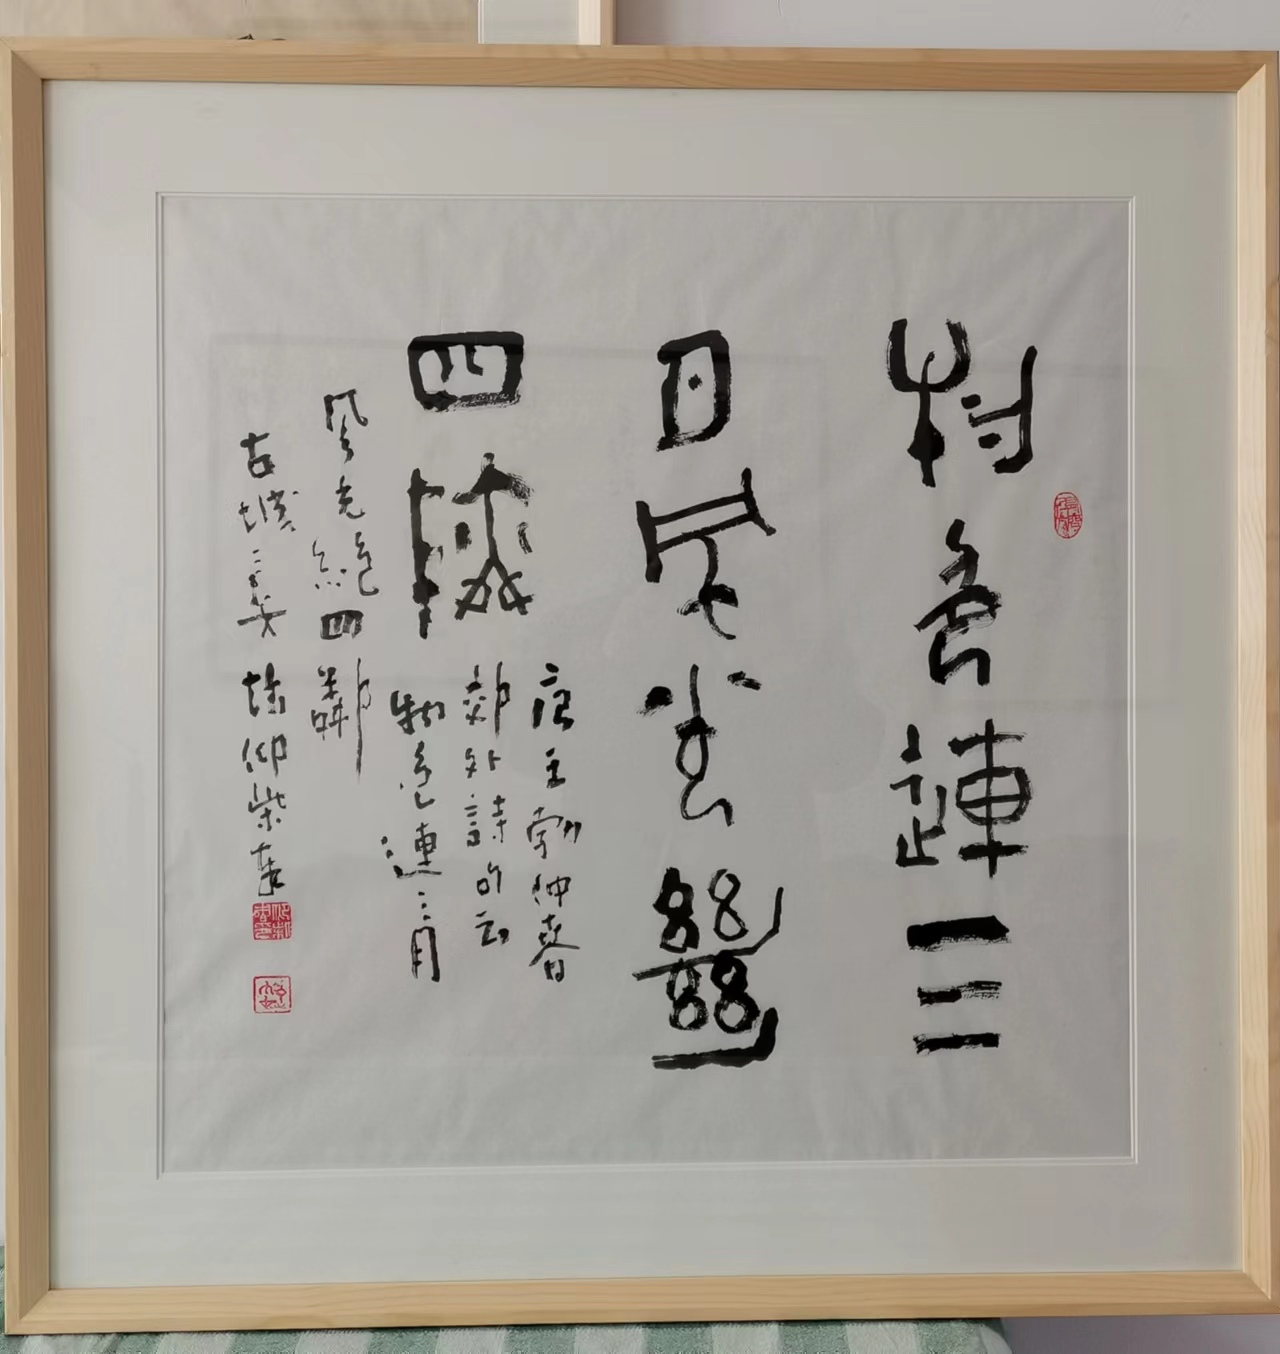 物色連三
月風光絕
四鄰
唐王勃仲春
郊外詩句云
物色連三月
風光絕四鄰
古城